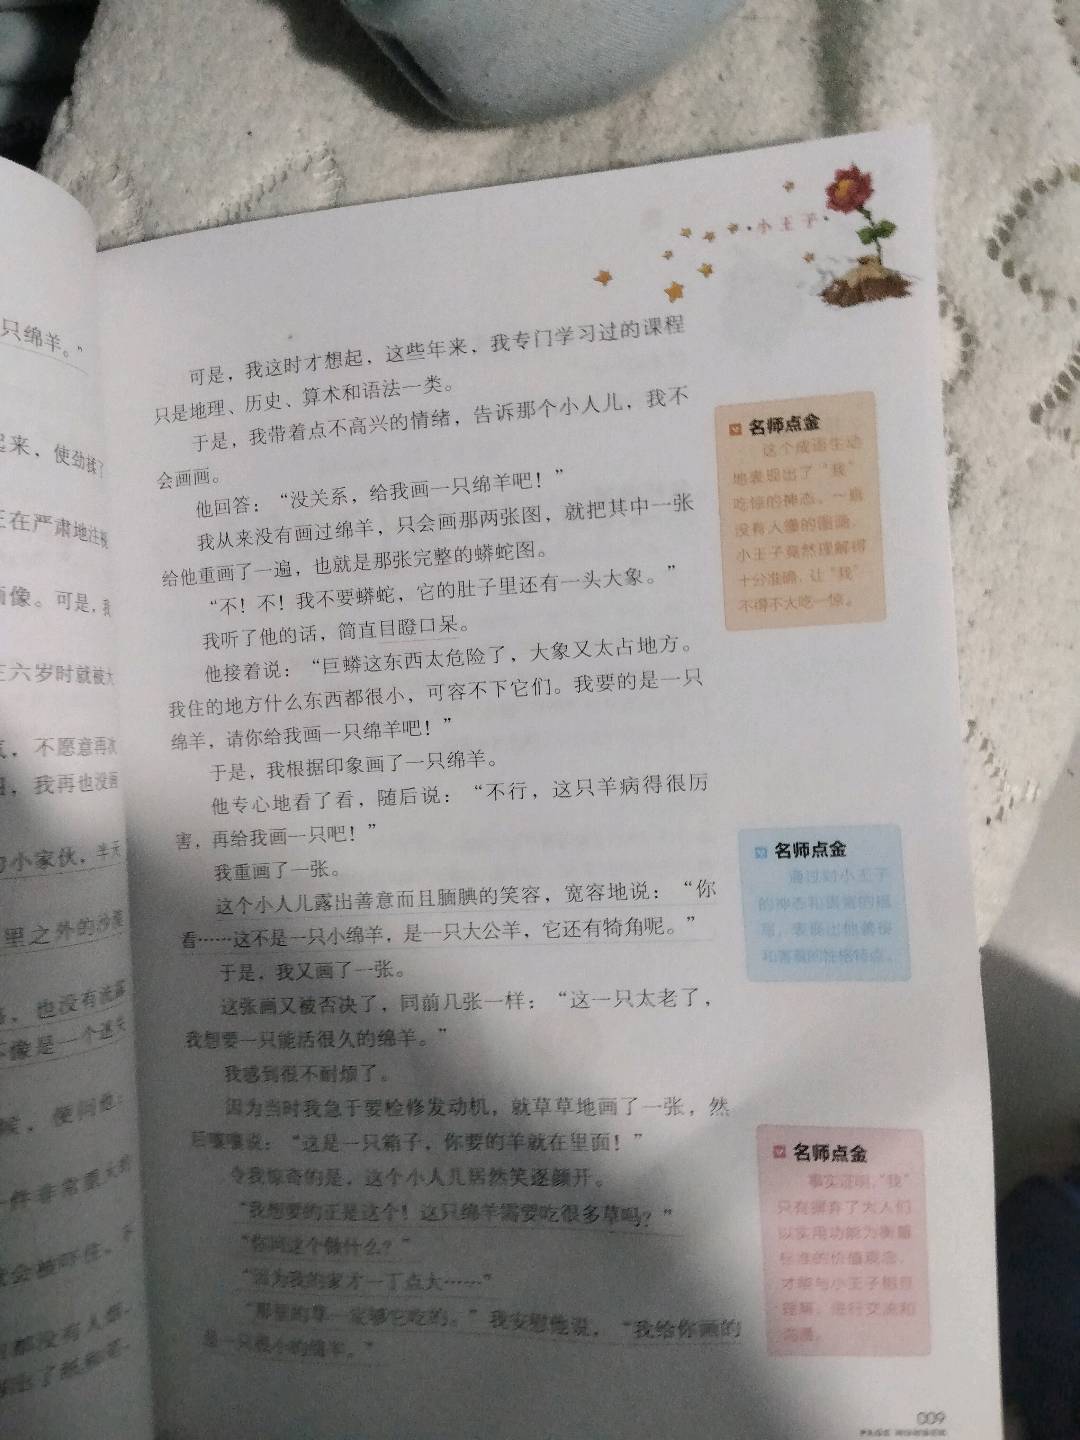 只绵羊。”
起来，使劲揉了
正在严肃地注视
画像。可是，我
在六岁时就被大
不愿意再次
我再也没画
小家伙，半天
里之外的沙漠
也没有流露
不像是一个迷失
候，便问他：
一件非常重大的
就会被吓住，不
都没有人烟
出了纸和笔
·小王子·
可是，我这时才想起，这些年来，我专门学习过的课程
只是地理、历史、算术和语法一类。
于是，我带着点不高兴的情绪，告诉那个小人儿，我不
会画画。
他回答：“没关系，给我画一只绵羊吧！”
我从来没有画过绵羊，只会画那两张图，就把其中一张
给他重画了一遍，也就是那张完整的蟒蛇图。
“不！不！我不要蟒蛇，它的肚子里还有一头大象。”
我听了他的话，简直目瞪口呆。
他接着说：“巨蟒这东西太危险了，大象又太占地方。
我住的地方什么东西都很小，可容不下它们。我要的是一只
绵羊，请你给我画一只绵羊吧！”
于是，我根据印象画了一只绵羊。
他专心地看了看，随后说：“不行，这只羊病得很厉
害，再给我画一只吧！”
我重画了一张。
这个小人儿露出善意而且腼腆的笑容，宽容地说：“你
看……这不是一只小绵羊，是一只大公羊，它还有犄角呢。”
于是，我又画了一张。
这张画又被否决了，同前几张一样：“这一只太老了，
我想要一只能活很久的绵羊。”
我感到很不耐烦了。
因为当时我急于要检修发动机，就草草地画了一张，然
后嚷嚷说：“这是一只箱子，你要的羊就在里面！”
令我惊奇的是，这个小人儿居然笑逐颜开。
“我想要的正是这个！这只绵羊需要吃很多草吗？”
“你问这个做什么？”
“因为我的家才一丁点大……”
“那里的草一定够它吃的。”我安慰他说，“我给你画的
是一只很小的绵羊。”
名师点金
这个成语生动
地表现出了“我”
吃惊的神态。一直
没有人懂的图画，
小王子竟然理解得
十分准确，让“我”
不得不大吃一惊。
名师点金
通过对小王子
的神态和语言的描
写，表现出他善良
和害羞的性格特点。
名师点金
事实证明，“我”
只有摒弃了大人们
以实用功能为衡量
标准的价值观念，
才能与小王子相互
理解，进行交流和
沟通。
009
PAGE NUMBER